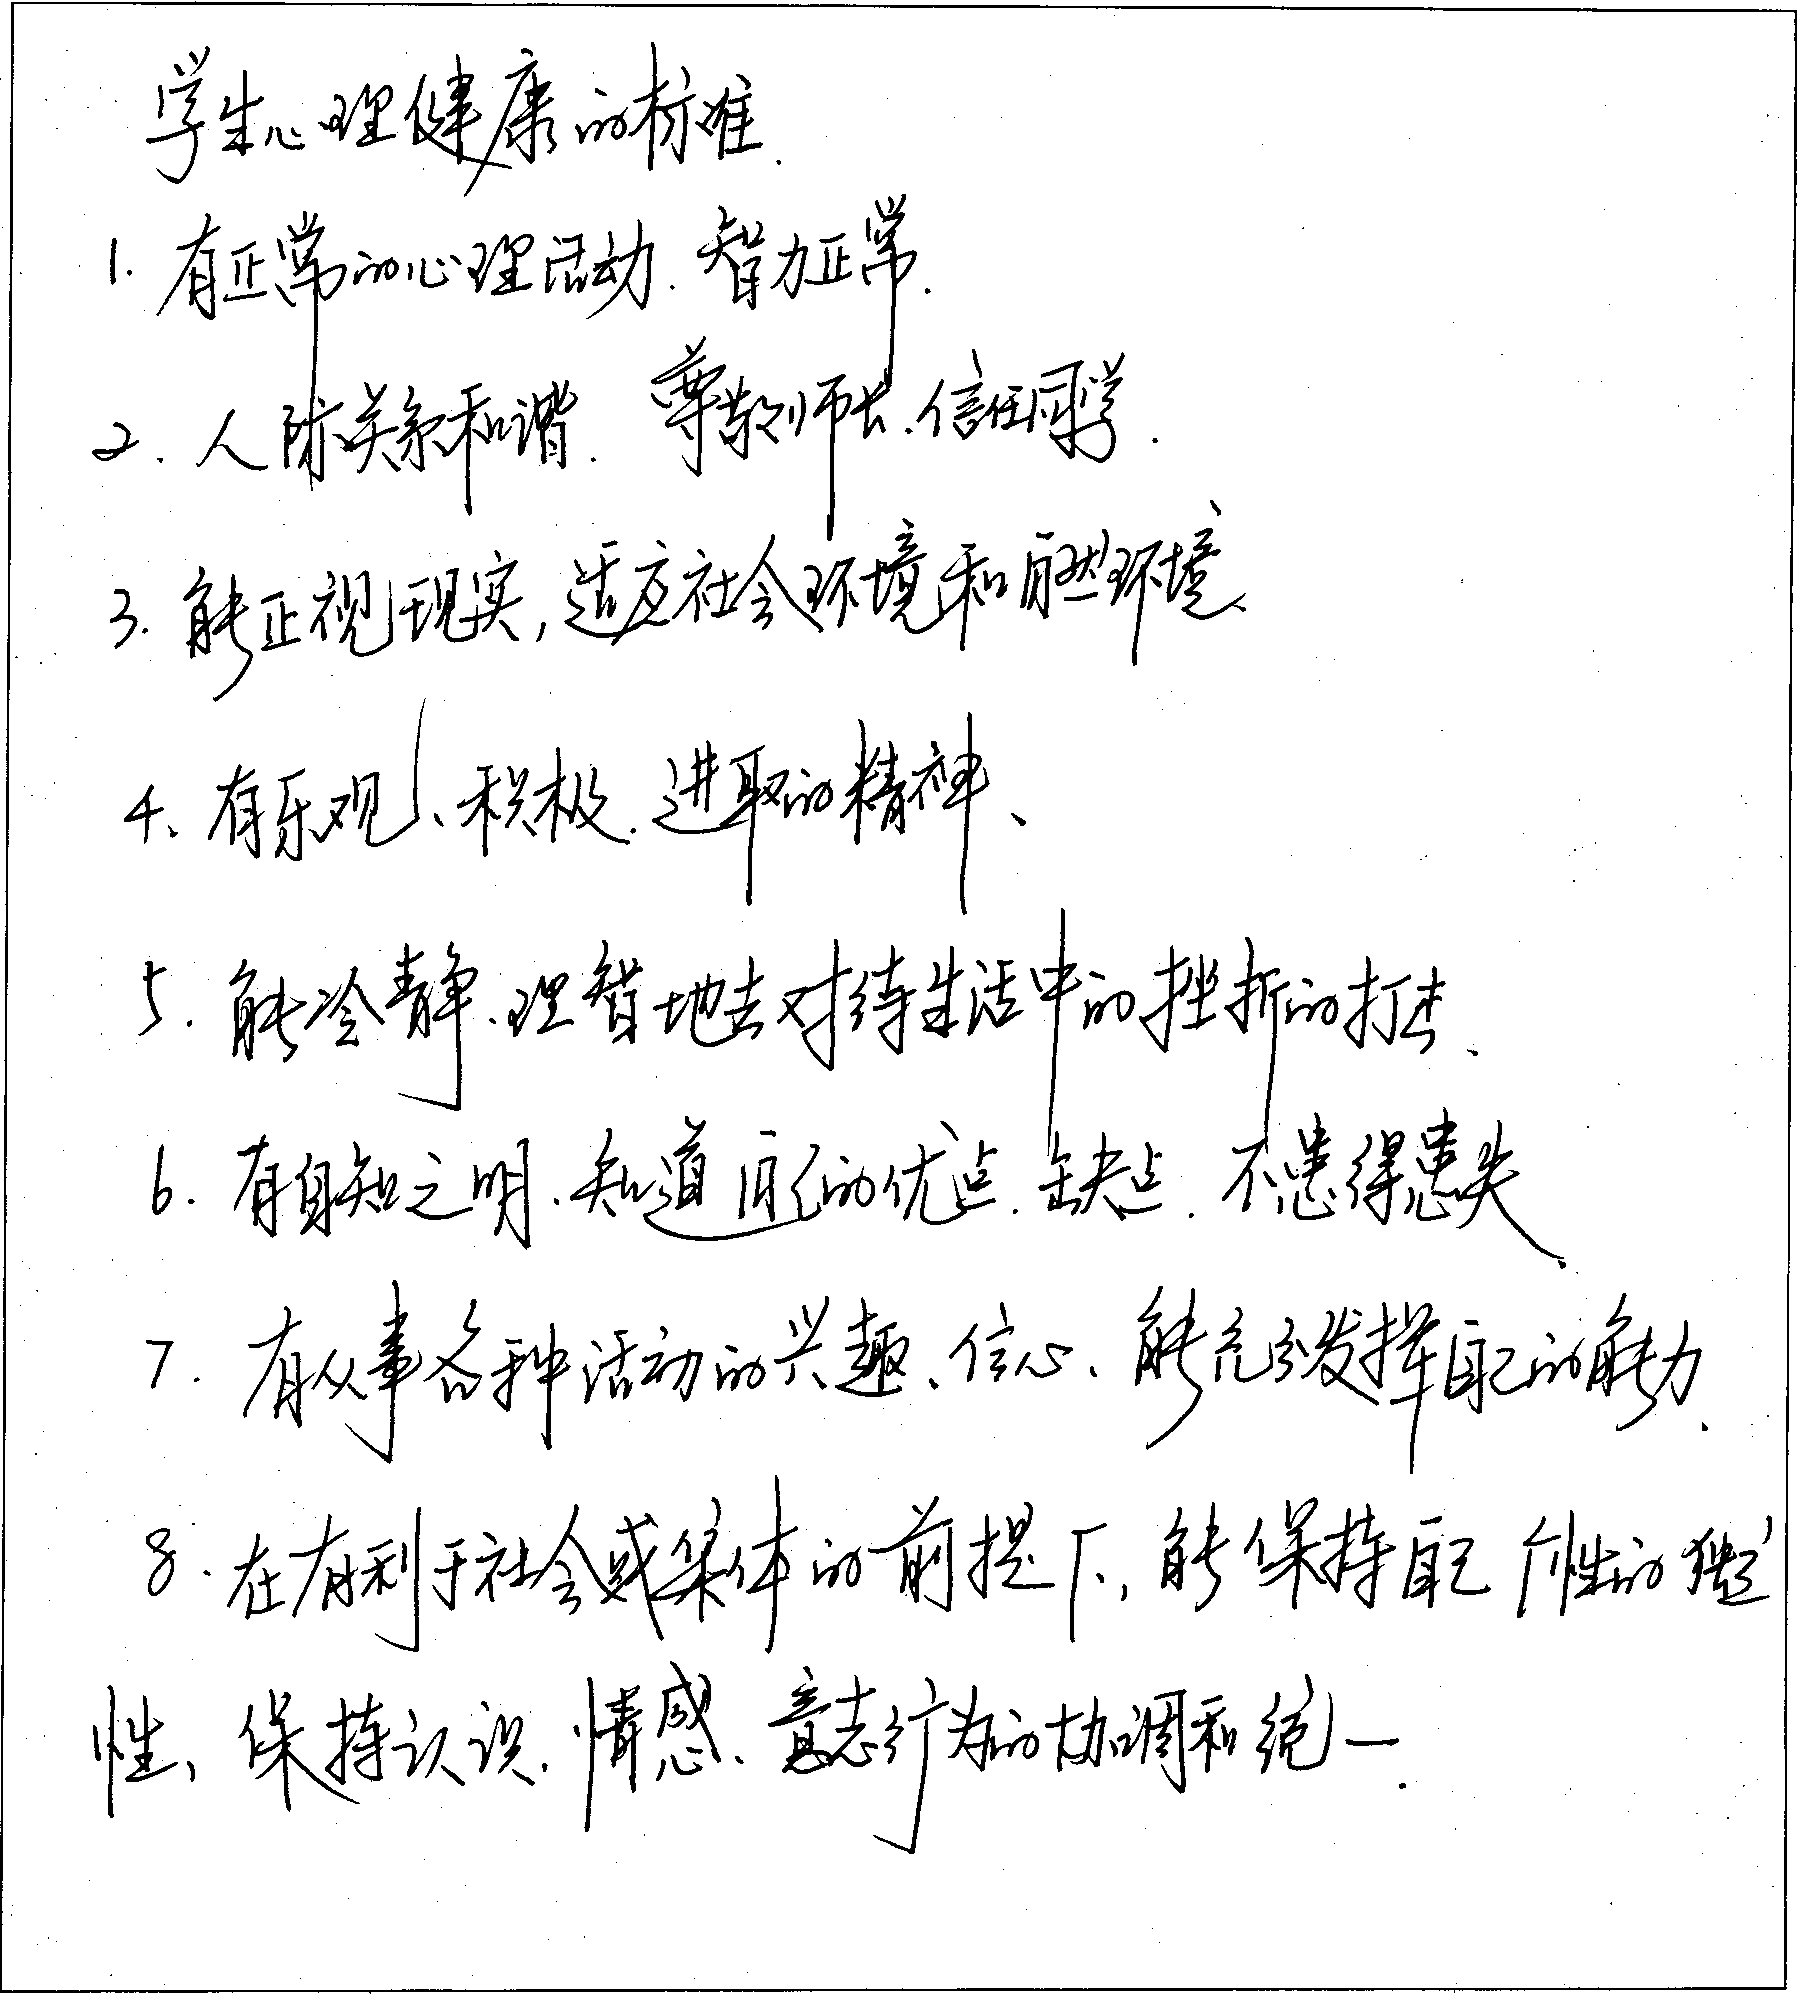 学生心理健康的标准.
1. 有正常的心理活动. 智力正常.
2. 人际关系和谐. 尊敬师长. 信任同学.
3. 能正视现实, 适应社会环境和自然环境、
4、有乐观、积极. 进取的精神、
5. 能冷静. 理智地去对待生活中的挫折的打击、
6. 有自知之明. 知道自己的优点. 缺点. 不患得患失、
7. 有从事各种活动的兴趣、信心、能充分发挥自己的能力.
8. 在有利于社会或集体的前提下, 能保持自己个性的独立
性、保持认识. 情感、意志行为的协调和统一.